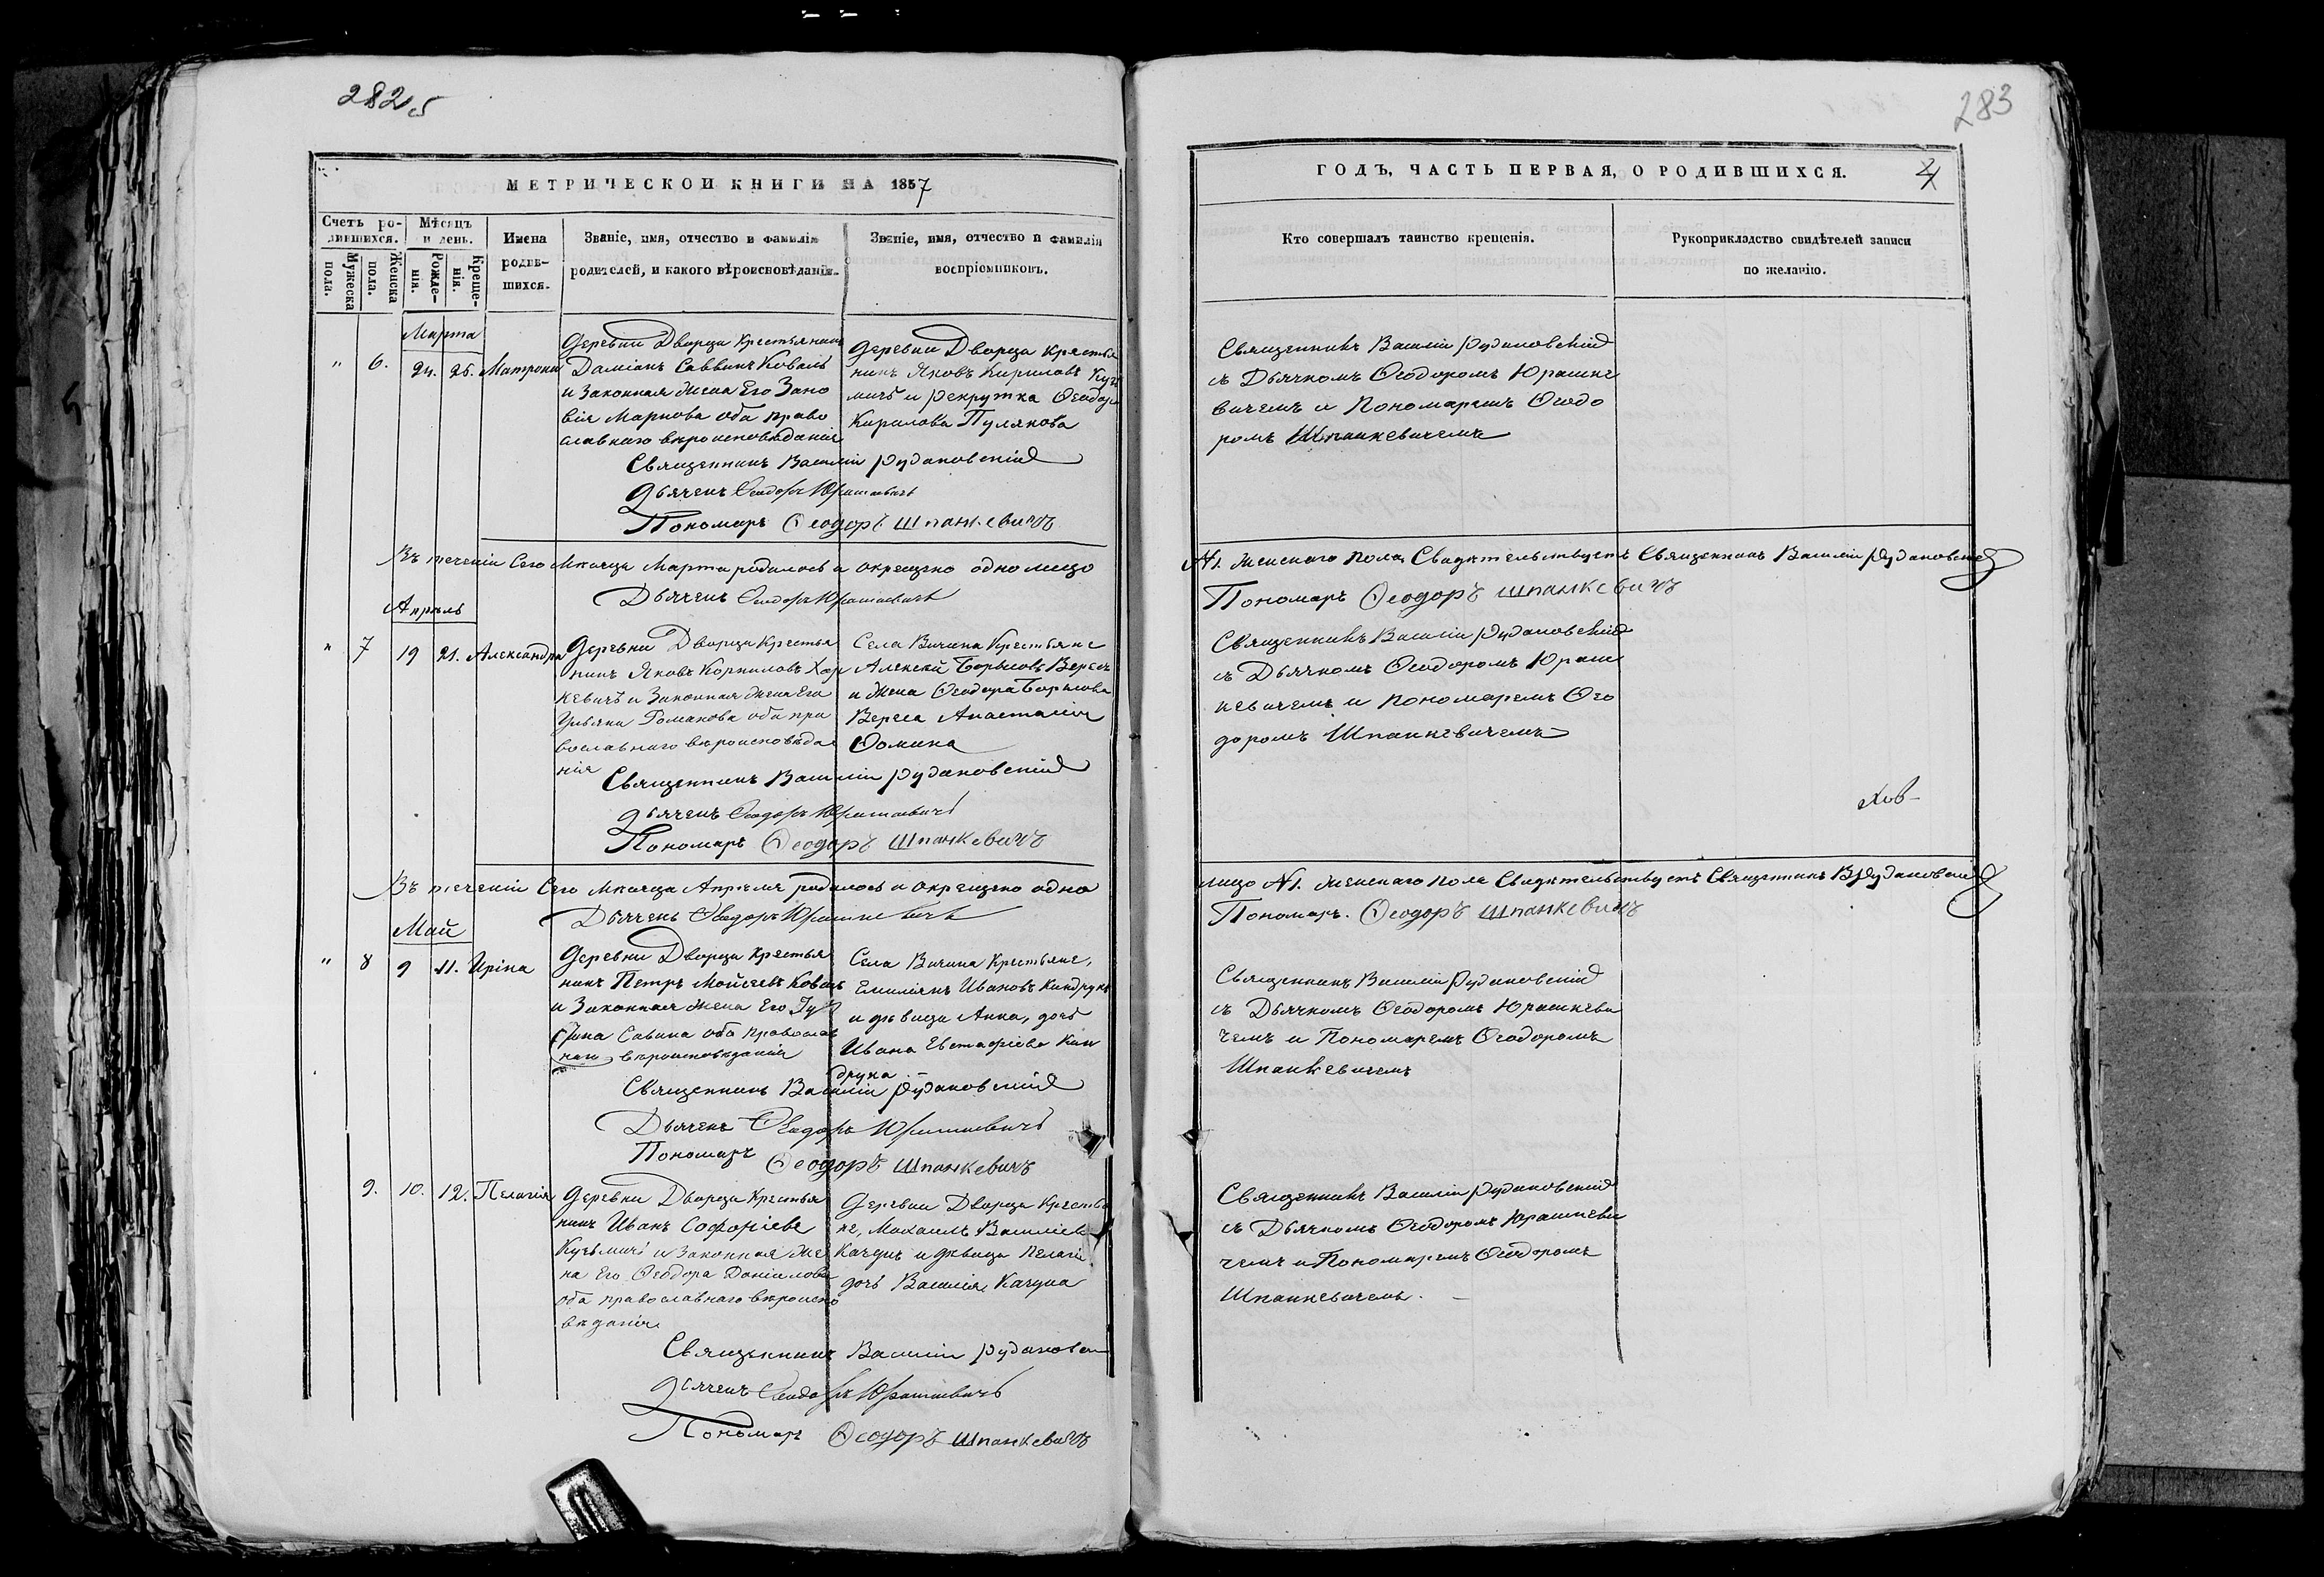 282 5
МЕТРИЧЕСКОЙ КНИГИ НА 1857
Счетъ ро-
дившихся.
Мужеска
пола.
Женска
пола.
Мѣсяцъ
и день.
Рожде-
нія.
Креще-
нія.
Имена
родив-
шихся.
Званіе, имя, отчество и фамилія
родителей, и какого вѣроисповѣданія.
Званіе, имя, отчество и фамилія
воспріемниковъ.
Марта
" 6. 24. 25. Матрона
Деревни Дворца Крестьянинъ
Даміанъ Саввинъ Коваль
и Законная жена Его Зано
вія Маркова оба право
славнаго вѣроисповѣданія
Деревни Дворца Крестья
нинъ Яковъ Кириловъ Кузь
мичъ и рекрутка Ѳеодора
Кирилова Пулякова
Священникъ Василій Рудаковскій
Дьячекъ Ѳеодоръ Юрашкевичъ
Пономарь Ѳеодоръ Шпанкевичъ
Въ теченіи Сего Мѣсяца Марта родилось и окрещено одно лицо
Дьячекъ Ѳеодоръ Юрашкевичъ
Апрѣль
" 7 19 21. Александра
Деревни Дворца Крестья
нинъ Яковъ Корниловъ Хар
кевичъ и Законная жена Его
Ульяна Романова оба пра
вославнаго вѣроисповѣда
нія
Села Вичина Крестьяне
Алексѣй Борисовъ Вересъ
и жена Ѳеодора Борисова
Вереса Анастасія
Ѳомина
Священникъ Василій Рудаковскій
Дьячекъ Ѳеодоръ Юрашкевичъ
Пономарь Ѳеодоръ Шпанкевичъ
Въ теченіи Сего Мѣсяца Апрѣля родилось и окрещено одно
Дьячекъ Ѳеодоръ Юрашкевичъ
Май
" 8 9 11. Иріна
Деревни Дворца Крестья
нинъ Петръ Мойсеевъ Коваль
и Законная жена Его Іу
стина Савина оба православ
наго вѣроисповѣданія
Села Вичина Крестьяне,
Емиліянъ Ивановъ Киндрукъ
и дѣвица Анна, дочь
Ивана Евстафіева Кин
друка. –
Священникъ Василій Рудаковскій
Дьячекъ Ѳеодоръ Юрашкевичъ
Пономарь Ѳеодоръ Шпанкевичъ
9. 10. 12. Пелагія
Деревни Дворца Крестья
нинъ Иванъ Софоніевъ
Кузьмичъ и Законная же
на Его Ѳеодора Даніилова
оба православнаго вѣроиспо
вѣданія
Деревни Дворца Крестья
не, Михаилъ Василіевъ
Качунъ и дѣвица Пелагія
дочь Василія Качуна
Священникъ Василій Рудаковскій
Дьячекъ Ѳеодоръ Юрашкевичъ
Пономарь Ѳеодоръ Шпанкевичъ
283
ГОДЪ, ЧАСТЬ ПЕРВАЯ, О РОДИВШИХСЯ.
Кто совершалъ таинство крещенія.
Рукоприкладство свидѣтелей записи
по желанію.
Священникъ Василій Рудаковскій
съ Дьячкомъ Ѳеодоромъ Юрашке
вичемъ и Пономаремъ Ѳеодо
ромъ Шпанкевичемъ
№1. Женскаго пола, Свидѣтельствуетъ Священникъ Василій Рудаковскій
Пономарь Ѳеодоръ Шпанкевичъ
Священникъ Василій Рудаковскій
съ Дьячкомъ Ѳеодоромъ Юраш
кевичемъ и Пономаремъ Ѳео
доромъ Шпанкевичемъ
лицо №1. Женскаго пола Свидѣтельствуетъ Священникъ В Рудаковскій
Пономарь. Ѳеодоръ Шпанкевичъ
Священникъ Василій Рудаковскій
съ Дьячкомъ Ѳеодоромъ Юрашкеви
чемъ и Пономаремъ Ѳеодоромъ
Шпанкевичемъ
Священникъ Василій Рудаковскій
съ Дьячкомъ Ѳеодоромъ Юрашкеви
чемъ и Пономаремъ Ѳеодоромъ
Шпанкевичемъ. –